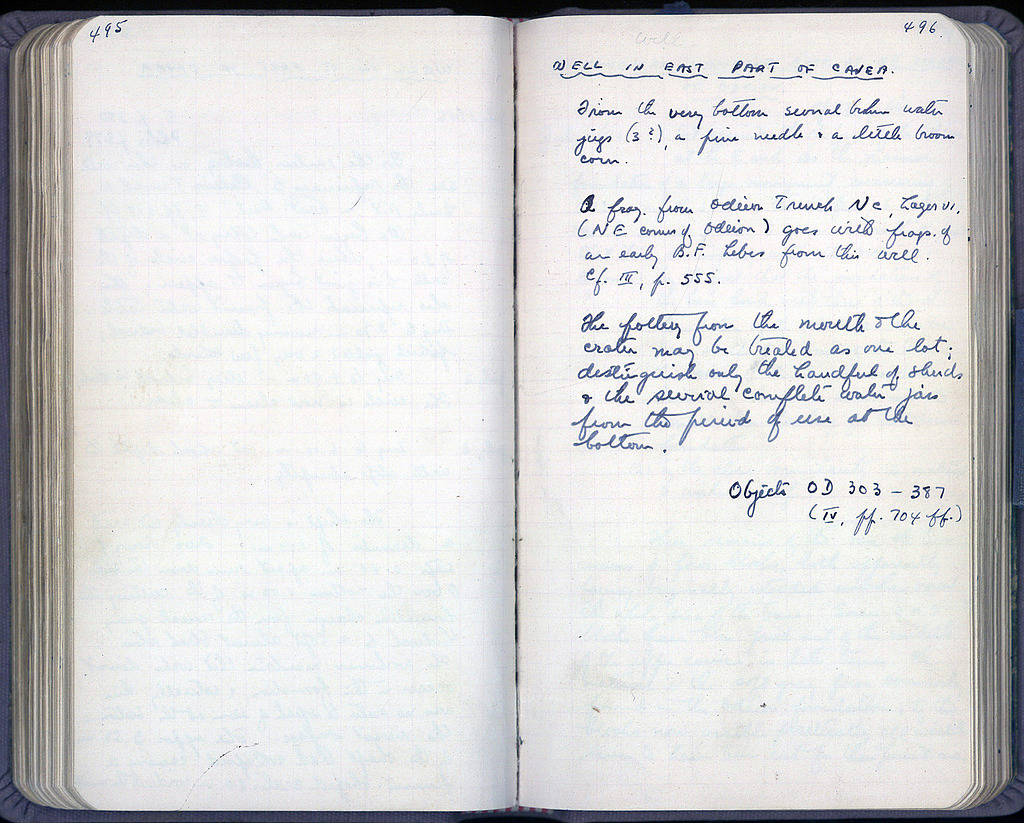 495
496.
well
WELL IN EAST PART OF CAVEA.
From the very bottom several broken water
jugs (3?), a pine needle & a little broom
corn.
A frag. from Odeion Trench NC, Layer VI.
(NE corner of Odeion) goes with frags. of
an early B.F. Lebes from this well.
Cf. III, p. 555.
The pottery from the mouth & the
crater may be treated as one lot;
distinguish only the handful of sherds
& the several complete water jars
from the period of use at the
bottom.
Objects OD 303 – 387
(IV, pp. 704 ff.)